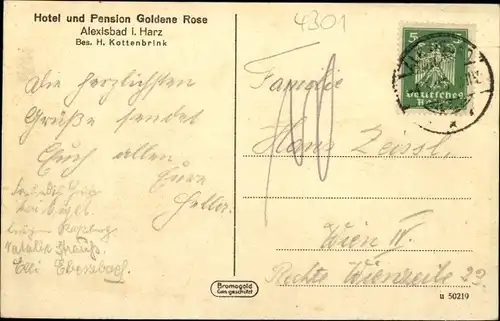 Hotel und Pension Goldene Rose
Alexisbad i. Harz
Bes. H. Kottenbrink
4301
5 5
Deutsches
Reich
Die herzlichsten
Grüße sendet
Euch allen
Eure
Familie
Hans Zeissl,
Wien IV.
Rechte Wienzeile 23.
Natalie Strauß
Elli Ebersbach.
Bromogold
Ges. geschützt
u 50219